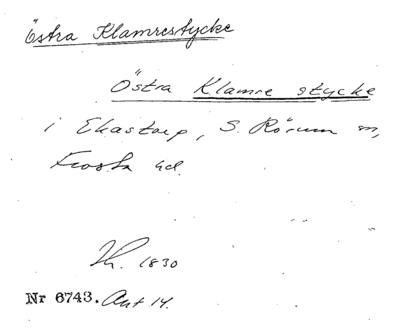 Östra Klamrestycke
Östra Klamre stycke
i Ekastorp, S. Rörum sn,
Frosta hd.
1830
Nr 6743. Akt 14.